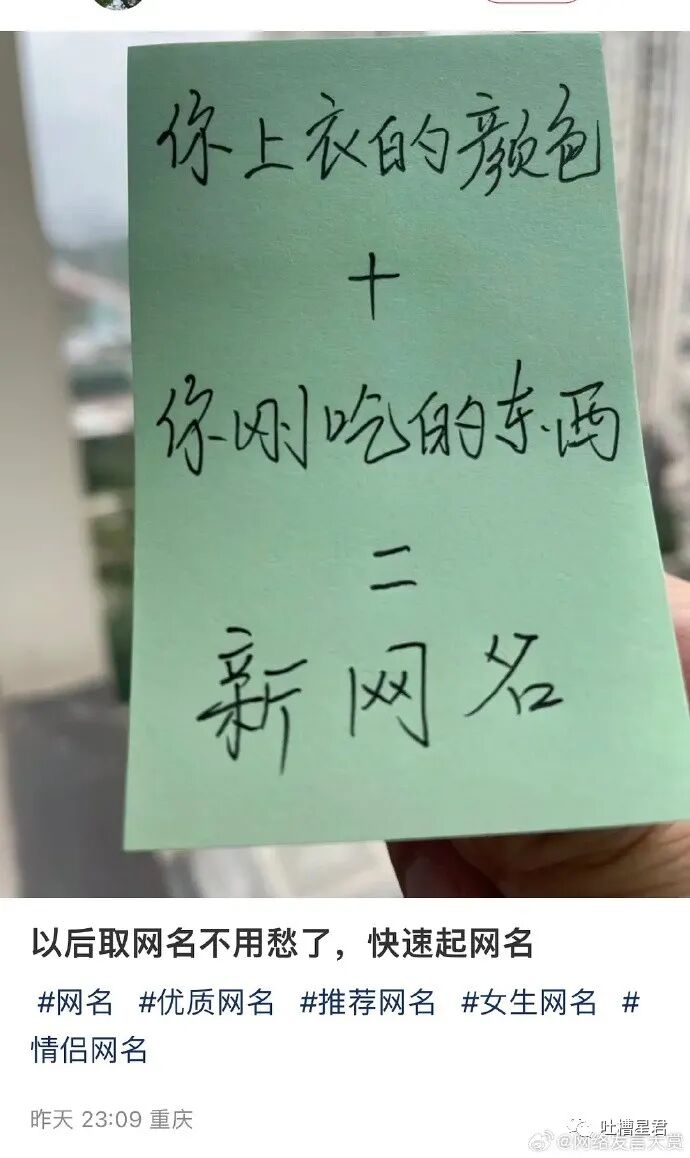 你上衣的颜色
+
你刚吃的东西
=
新网名
以后取网名不用愁了，快速起网名
#网名 #优质网名 #推荐网名 #女生网名 #
情侣网名
昨天 23:09 重庆
吐槽星君
@网络发言大赏